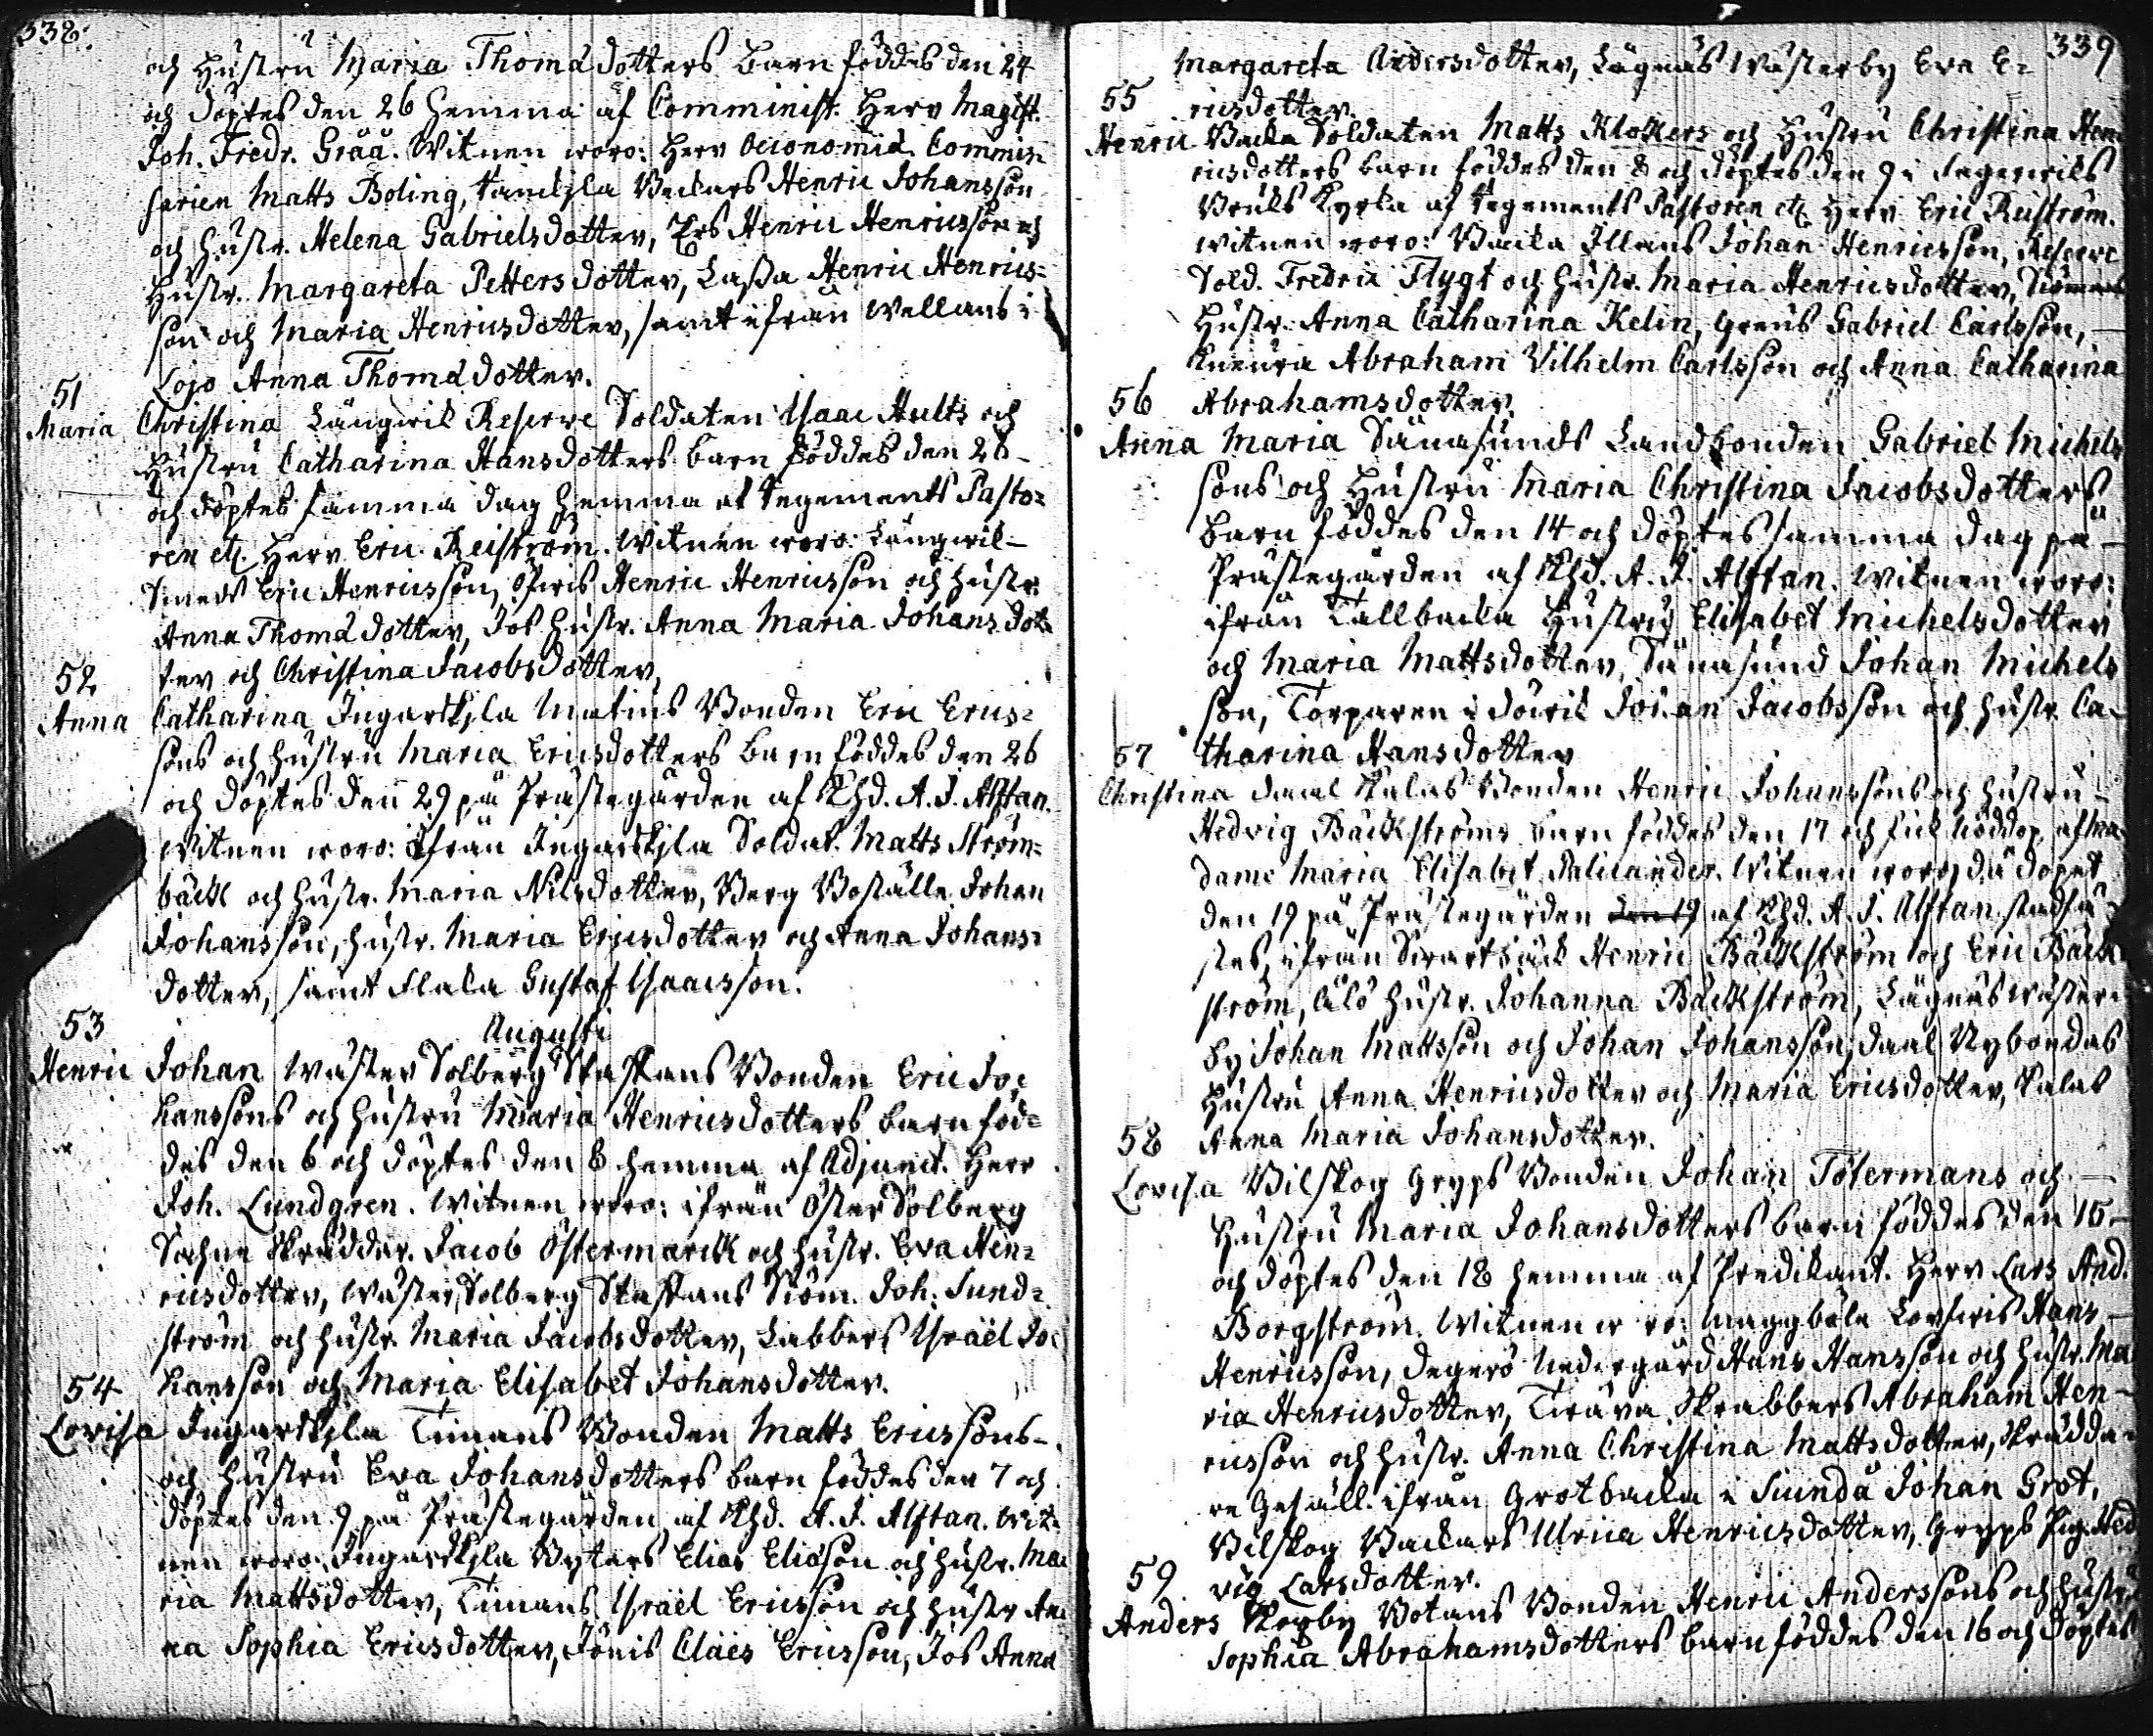 338.
och Hustru Maria Thomæ dotters barn föddes den 24
och döptes den 26 hemma af Comminist. Herr Magist.
Joh. Fredr. Gråå. Witnen woro: Herr Oeconomiæ Commis-
sarien Matts Boling, Backars Henric Johansson
och hustr. Helena Gabrielsdotter, Ers Henric Henricsson och
Hustr. Margareta Pettersdotter, Lassa Henric Henrics-
son och Maria Henricsdotter, samt ifrån Wellans i
Lojo Anna Thomæ dotter.
51
Maria Christina Långwik Reserve Soldaten Isaac Hults och
Hustru Catharina Hansdotters barn föddes den 26
och döptes samma dag hemma af Regements Pasto-
ren etc. Herr Eric Reiström. Witnen woro: Långwik
Smeds Eric Henricsson, Henric Henricsson och hustr.
Anna Thomæ dotter, Jos hustr. Anna Maria Johansdot-
ter och Christina Jacobsdotter.
52
Anna Catharina Ingarskila Matius Bonden Eric Erics-
sons och hustru Maria Ericsdotters barn föddes den 26
och döptes den 29 på Prästegården af Khd. A. J. Alftan.
Witnen woro: ifrån Ingarskila Soldat. Matts Ström-
bäck och hustr. Maria Nilsdotter, Berg Boställe Johan
Johansson, hustr. Maria Ericsdotter och Anna Johans-
dotter, samt Flaka Gustaf Isaacsson.
Augusti
53
Henric Johan Wäster Solberg Staffans Bonden Eric Jo-
hanssons och hustru Maria Henricsdotters barn föd-
des den 6 och döptes den 8 hemma af Adjunct. Herr
Joh. Lundgren. Witnen woro: ifrån Öster Solberg
Sockne Skräddar. Jacob Östermarck och hustr. Eva Hen-
ricsdotter, Wäster Solberg Staffans Siöm. Joh. Sund-
ström och hustr. Maria Jacobsdotter, Labbers Israël Jo-
hansson och Maria Elisabet Johansdotter.
54
Lovisa Ingarskila Timans Bonden Matts Ericssons
och Hustru Eva Johansdotters barn föddes den 7 och
döptes den 9 på Prästegården af Khd. A. J. Alftan. Wit-
nen woro: Ingarskila Byters Elias Eliæson och hustr. Ma-
ria Mattsdotter, Timans Israël Ericsson och hustr. An-
na Sophia Ericsdotter, Jönis Claës Ericsson, Jos Anna
339
Margareta Andersdotter, Lågnäs Wästerby Eva E-
ricsdotter.
55
Henric Backa Soldaten Matts Klockers och Hustru Christina Hen-
ricsdotters barn föddes den 8 och döptes den 9 i Fagerwiks
Bruks Kyrka af Regements Pastoren etc. Herr Eric Reiström.
Witnen woro: Backa Illans Johan Henricsson, Reserve
Sold. Fredric Flygt och hustr. Maria Henricsdotter, Siömans
Hustr. Anna Catharina Kelin, Grens Gabriel Carlsson,
Abraham Vilhelm Carlsson och Anna Catharina
Abrahamsdotter.
56
Anna Maria Sånasunds Landbonden Gabriel Michels-
sons och Hustru Maria Christina Jacobsdotters
barn föddes den 14 och döptes samma dag på
Prästegården af Khd. A. J. Alftan. Witnen woro:
ifrån Tallbacka Hustru Elisabet Michelsdotter
och Maria Mattsdotter, Sånasund Johan Michels
son, Torparen i Johan Jacobsson och hustr. Ca-
tharina Hansdotter
57
Christina Daal Kalas Bonden Henric Johanssons och hustru
Hedvig Bäckströms barn föddes den 17 och fick nöddop af Ma-
dame Maria Elisabet Witnen woro, då dopet
den 19 på Prästegården den 19 af Khd. A. J. Alftan stadfä-
stes, ifrån Svartbäck Henric Bäckström och Eric Bäck-
ström, hustr. Johanna Bäckström, Lågnäs Wäster-
by Johan Mattsson och Johan Johansson, Daal Nybondas
Hustru Anna Henricsdotter och Maria Ericsdotter, Kalas
Anna Maria Johansdotter.
58
Lovisa Vilskog Gryps Bonden Johan Tötermans och
Hustru Maria Johansdotters barn föddes den 15
och döptes den 18 hemma af Predikant. Herr Lars And.
Borgström. Witnen woro: Maggböle Hans
Henricsson, Degerö Nedergård Hans Hansson och hustr. Ma-
ria Henricsdotter, Tiräva Skrabbers Abraham Hen-
ricsson och hustr. Anna Christina Mattsdotter, Skrädda-
re Gesäll. ifrån Grotbacka i Siundå Johan Grot,
Vilskog Backars Ulrica Henricsdotter, Gryps Pig. Hed
vig Larsdotter.
59
Anders Botans Bonden Henric Anderssons och hustru
Sophia Abrahamsdotters barn föddes den 16 och döptes